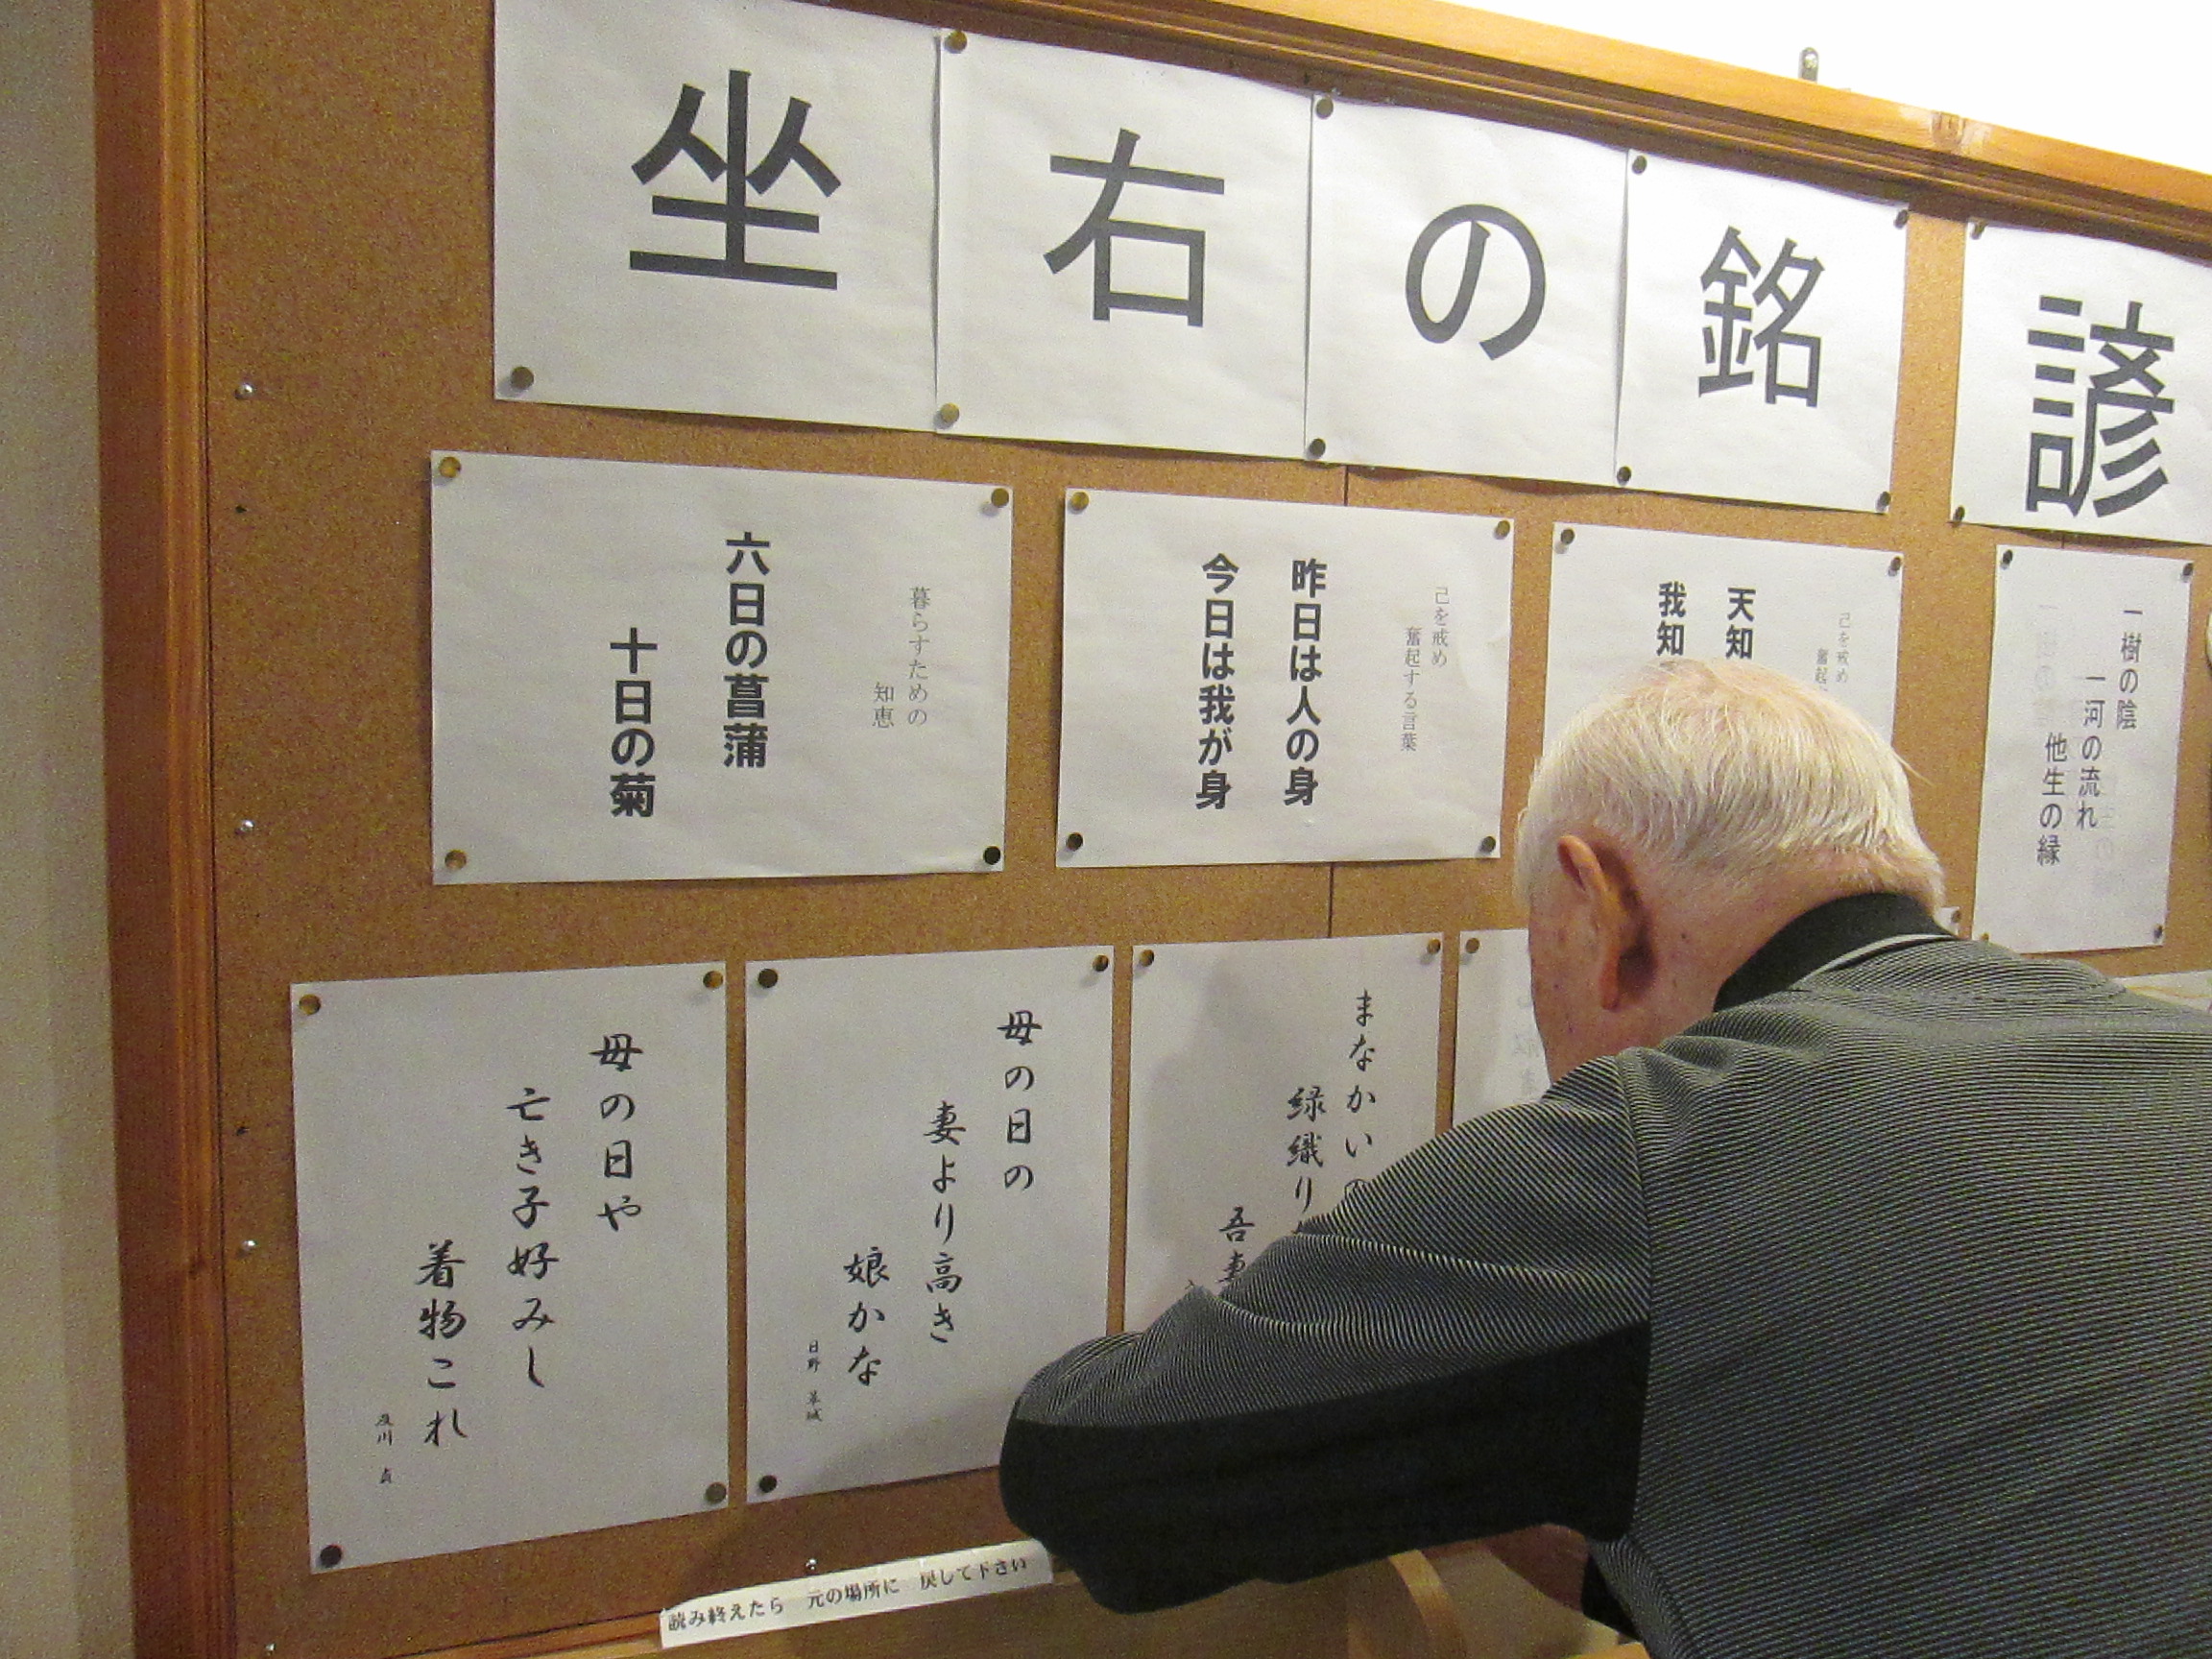 坐右の銘
諺
暮らすための
知恵
六日の菖蒲
十日の菊
己を戒め
奮起する言葉
昨日は人の身
今日は我が身
己を戒め
奮起
天知
我知
一樹の陰
一河の流れ
他生の縁
母の日や
亡き子好みし
着物これ
母の日の
妻より高き
娘かな
日野 草城
まなかいの
緑織り
吾妻
読み終えたら 元の場所に 戻して下さい